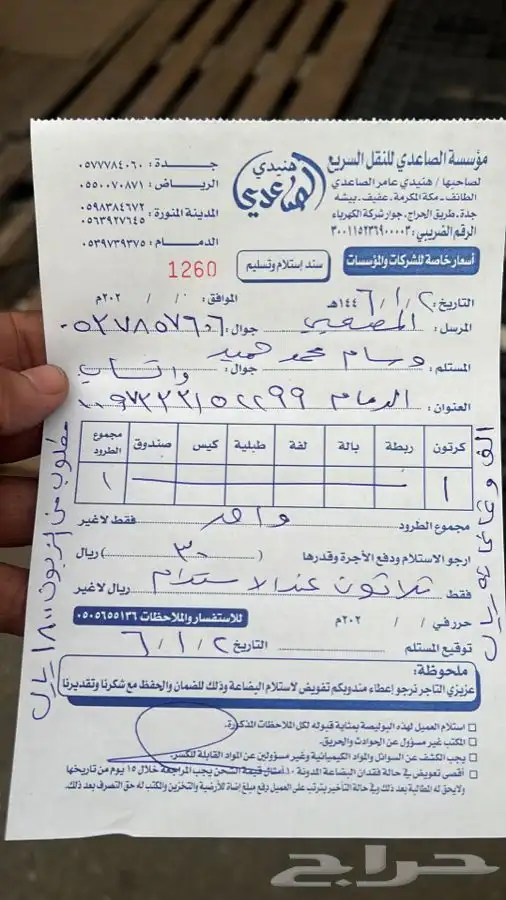 مؤسسة الصاعدي للنقل السريع
لصاحبها / هنيدي عامر الصاعدي
الطائف - مكة المكرمة. عفيف. بيشه
جدة. طريق الحراج. جوار شركة الكهرباء
الرقم الضريبي: ٣٠٠١١٥٢٣٦٩٠٠٠٠٣
أسعار خاصة للشركات والمؤسسات
هنيدي
الصاعدي
سند إستلام وتسليم
جــدة : ٠٥٧٧٧٨٤٠٦٠
الرياض : ٠٥٥٠٠٧٠٨٧١
المدينة المنورة : ٠٥٩٨٣٨٤٦٧٢
٠٥٦٣٩٢٧٦٤٥
الدمام : ٠٥٣٩٧٣٩٣٧٥
1260
التاريخ : ٢ / ١ / ١٤٤٦هـ الموافق : / / ٢٠٢٠م
المرسل : المصعبي جوال : ٠٥٢٧٨٥٧٦٠٦
المستلم : وسام محمد حميد جوال : واتساب
العنوان : الدمام ٠٠٩٧٣٣٣١٥٢٢٩٩
كرتون ربطة بالة لفة طبلية كيس صندوق مجموع الطرود
١ ١
مجموع الطرود واحد فقط لاغير
ارجو الاستلام ودفع الأجرة وقدرها ( ٣٠ ) ريال
فقط ثلاثون عند الاستلام ريال لاغير
حرر في / / ٢٠٢م
للاستفسار والملاحظات ٠٥٠٥٦٥٥١٣٦
توقيع المستلم التاريخ ٢ / ١ / ٦
ملحوظة :
عزيزي التاجر نرجو إعطاء مندوبكم تفويض لاستلام البضاعة وذلك للضمان والحفظ مع شكرنا وتقديرنا
استلام العميل لهذه البوليصة بمثابة قبوله لكل الملاحظات المذكورة.
المكتب غير مسؤول عن الحوادث والحريق.
يجب الكشف عن السوائل والمواد الكيميائية وغير مسؤولين عن المواد القابلة للكسر.
أقصى تعويض في حالة فقدان البضاعة المدونة ١٠ أمثال قيمة الشحن يجب المراجعة خلال ١٥ يوم من تاريخها
ولايحق له المطالبة بعد ذلك وفي حالة التأخير يترتب على العميل دفع مبلغ إضافة للأرضية والتخزين والمكتب له حق التصرف بعد ذلك.
الف وثمانمائة ريال
مطلوب من الزبون ١٨٠٠ ريال
حراج